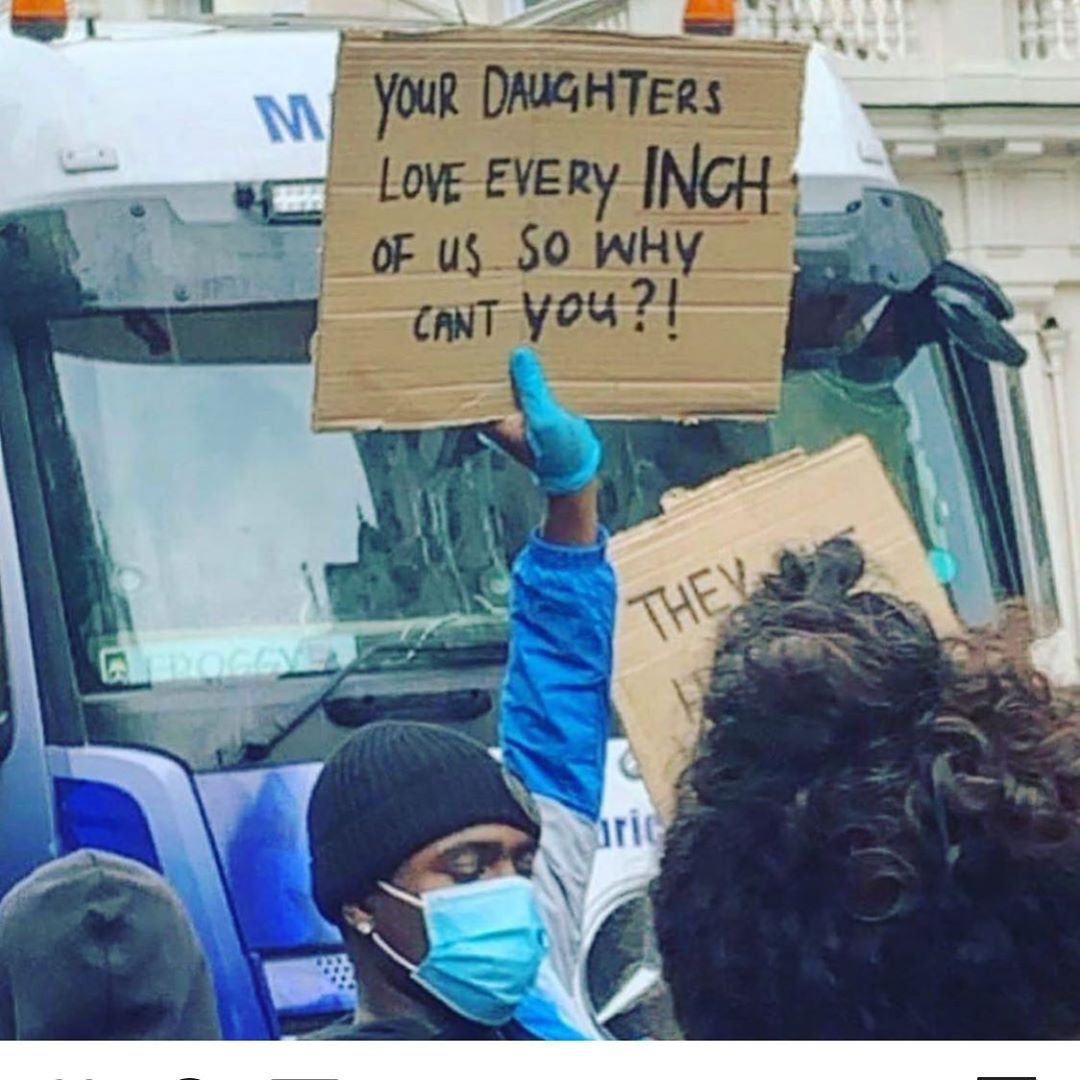 M
YOUR DAUGHTERS
LOVE EVERY INCH
OF US SO WHY
CANT YOU?!
THEY
FROGGY